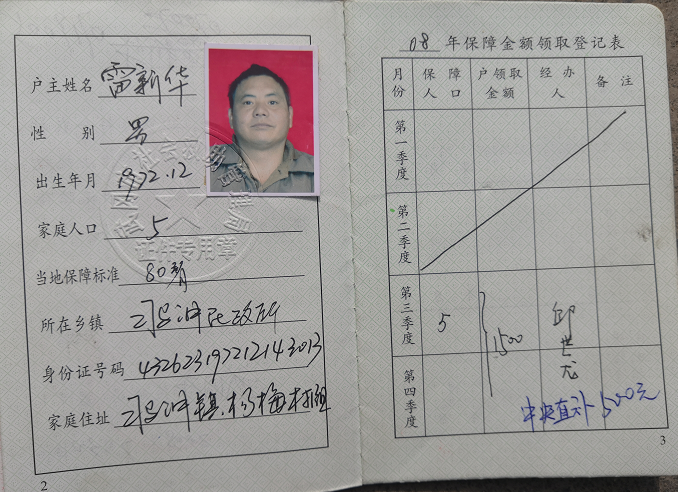 户主姓名 雷新华
性 别 男
出生年月 1972.12
家庭人口 5
当地保障标准 80
所在乡镇 民政所
身份证号码 432623197212143013
家庭住址 镇杨梅村组
证件专用章
2
08 年保障金额领取登记表
月份 保障人口 户领取金额 经办人 备注
第一季度
第二季度
第三季度 5 1500 邱世龙
第四季度
中央直补 500元
3